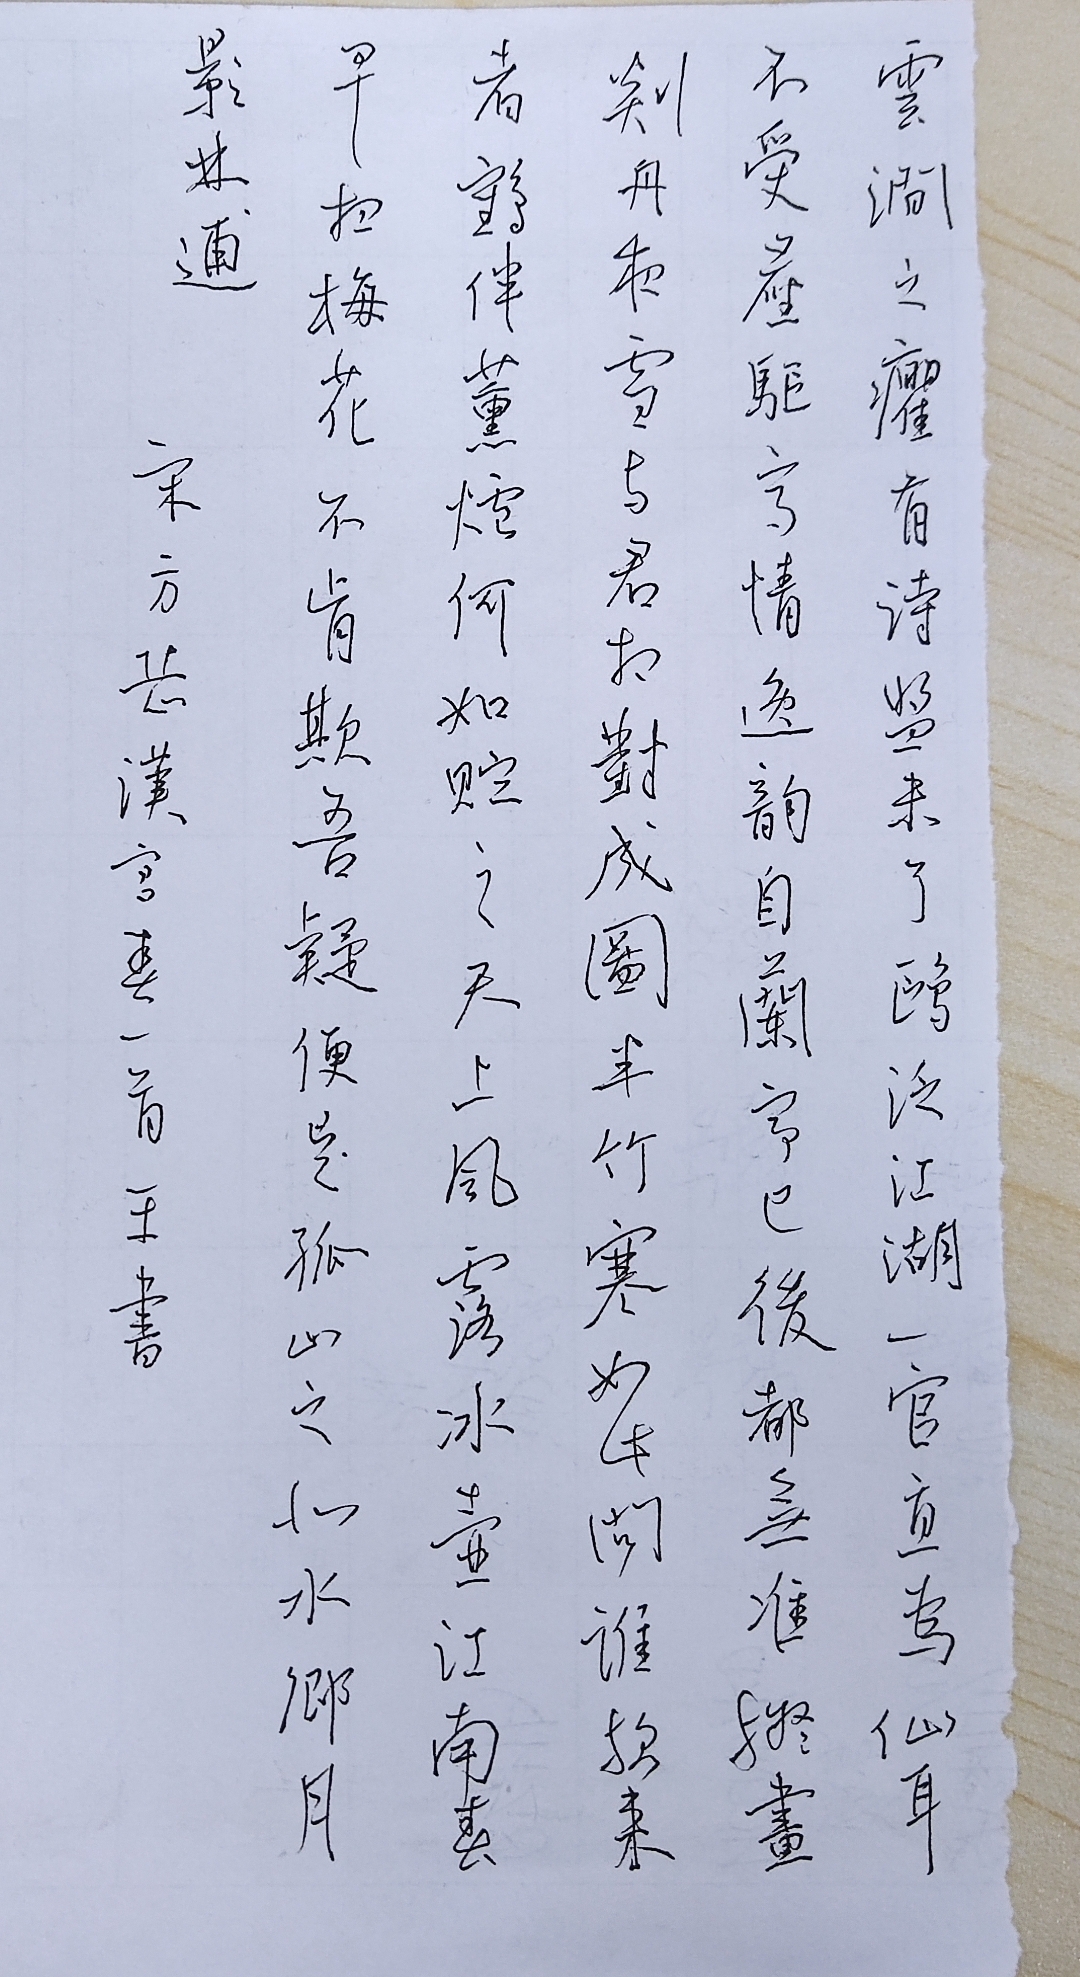 雲澗之癯有詩盟未了鷗泛江湖一官直為仙耳
不受塵驅高情逸韵自蘭亭已後都無准擬畫
剡舟夜雪与君相對成圖半竹寒如此問誰款来
者鶴伴薰爐何如貯之天上風露冰壺江南春
早梅花不肯欺吾疑便是孤山之仙水鄉月
影林逋
宋方漢宫春一首書